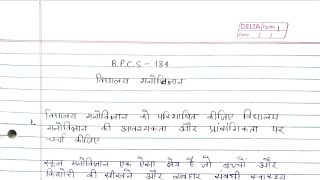 DELTA
B.P.C.S - 184
विद्यालय मनोविज्ञान
1. विद्यालय मनोविज्ञान को परिभाषित कीजिए विद्यालय
मनोविज्ञान की आवश्यकता और प्रांसगिकता पर
चर्चा कीजिए
स्कूल मनोविज्ञान एक ऐसा क्षेत्र है जो बच्चों और
किशोरों की सीखने और व्यवहार संबंधी स्वास्थ्य